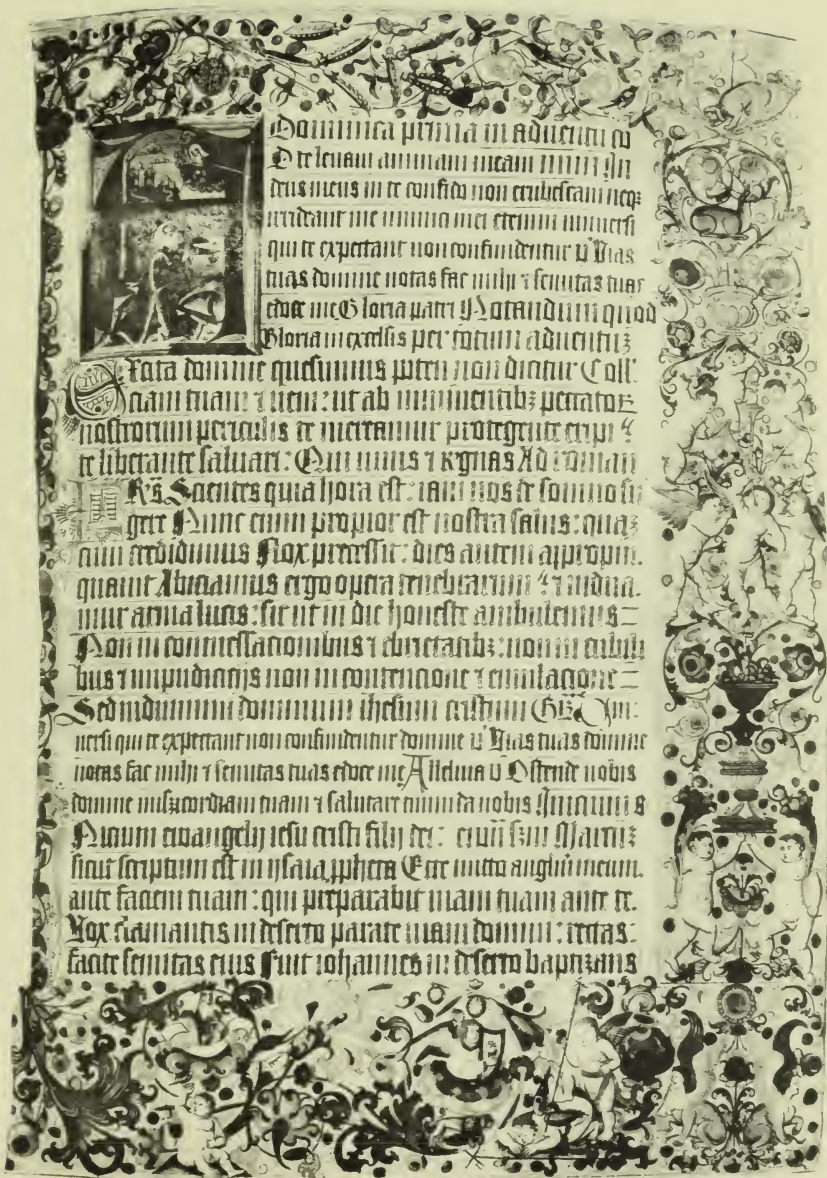 Dominica prima in aduentu
te leuaui animam meam
deus meus in te confido non erubescam neqz
irrideant me inimici mei etenim uniuersi
qui te expectant non confundentur v Vias
tuas domine notas fac michi ⁊ semitas tuas
edoce me Gloria patri Notandum quod
Gloria in excelsis per totum aduentuz
Excita domine quesumus poten non dicitur Coll
ciam tuam ⁊ ueni : ut ab imminentibz peccatoꝝ
nostrorum periculis te mereamur protegente eripi
te liberante saluari : Qui uiuis ⁊ regnas Ad roman
Scientes quia hora est : iam nos de somno su
gere Nunc enim propior est nostra salus : quaz
cum credidimus Nox precessit : dies autem appropin
quauit Abiciamus ergo opera tenebrarum ⁊ indua
mur arma lucis : sic ut in die honeste ambulemus
Non in comessacionibus ⁊ ebrietatibz : non in cubili
bus ⁊ impudicitijs non in contencione ⁊ emulacione
Sed induimini dominum ihesum cristum
uersi qui te expectant non confundentur domine v Vias tuas domine
notas fac michi ⁊ semitas tuas edoce me Alleluia v Ostende nobis
domine mīam tuam ⁊ salutare tuum da nobis
Inicium ewangelij iesu cristi filij dei : Marcuz
sicut scriptum est in ysaia ppheta Ecce mitto angelū meum
ante faciem tuam : qui preparabit uiam tuam ante te
Vox clamantis in deserto parate uiam domini : rectas
facite semitas eius Fuit iohannes in deserto baptizans